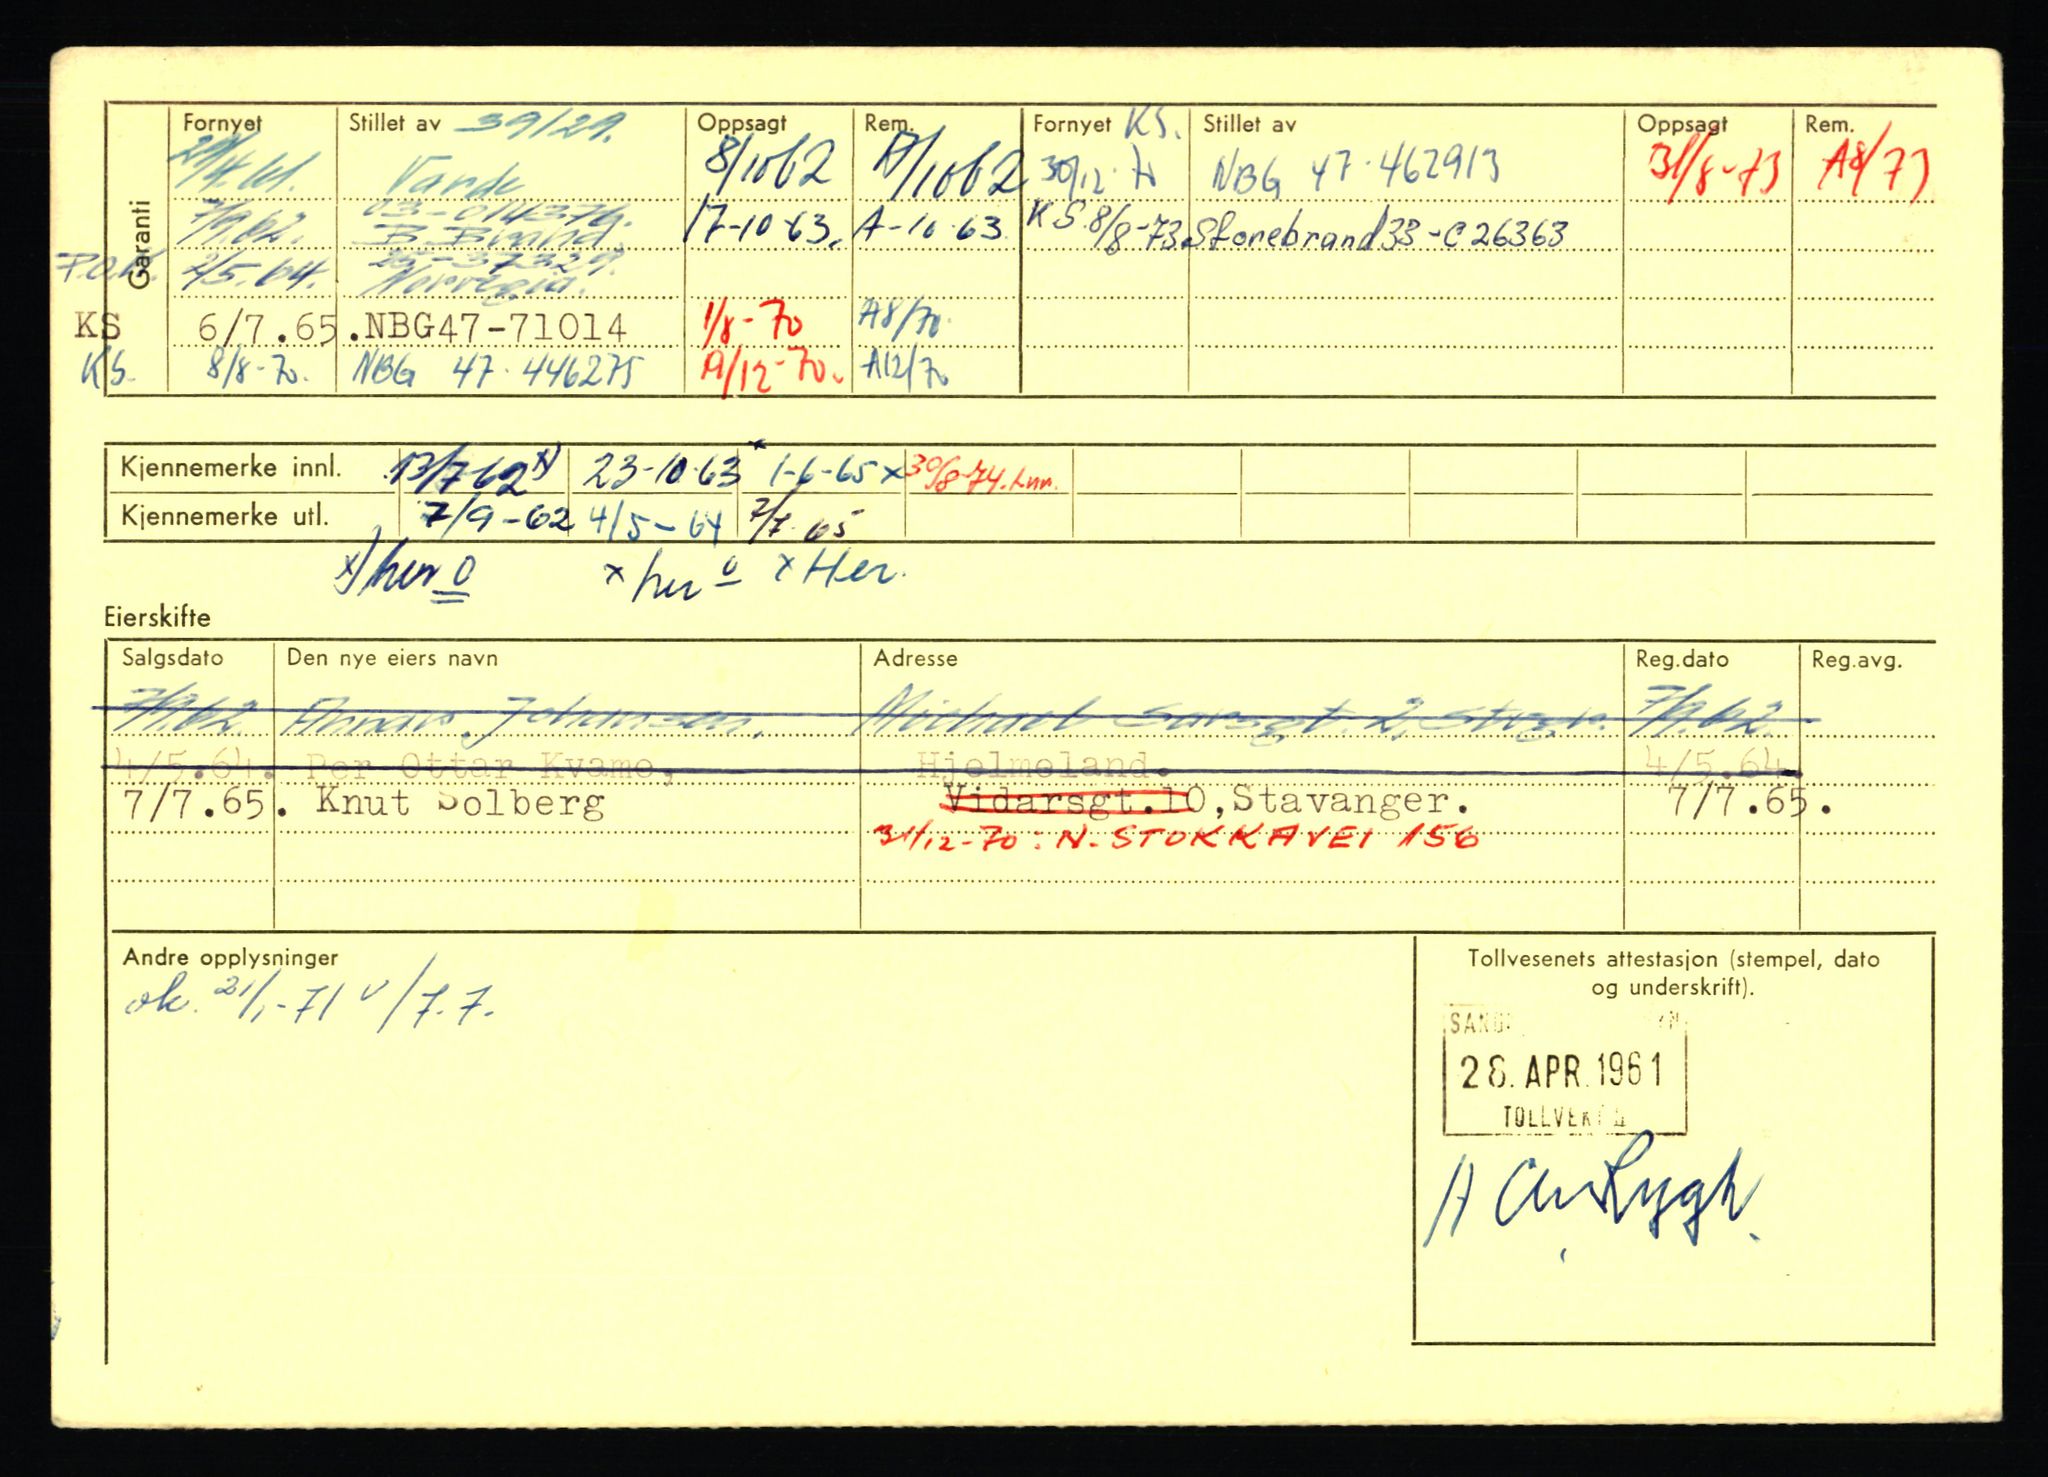 Garanti
Fornyet Stillet av 39/29. Oppsagt Rem. Fornyet KS. Stillet av Oppsagt Rem.
Varde 8/10 62 30/12-70 NBG 47-462913 31/8-73 A8/73
7/9.62. 03-014376. 17-10-63. A-10-63 KS. 8/8-73. Storebrand 33-C26363
2/5.64. Norvegia.
KS 6/7.65. NBG47-71014 1/8-70 A8/70
KS. 8/8-70. NBG 47-446275 A12/70
Kjennemerke innl. 13/7-62 x) 23-10-63 x 1-6-65 x 30/8-74.
Kjennemerke utl. 7/9-62 4/5-64 7/7-65
x) her x her x Her.
Eierskifte
Salgsdato Den nye eiers navn Adresse Reg.dato Reg.avg.
7/9.62. Johnsen, Michael Sarsgt. 2, Stvgr. 7/9.62.
4/5.64. Per Ottar Kvame, Hjelmeland. 4/5.64.
7/7.65. Knut Solberg Vidarsgt.10, Stavanger. 7/7.65.
31/12-70: N. STOKKAVEI 156
Andre opplysninger
ok. 21/1-71 v/7.7.
Tollvesenets attestasjon (stempel, dato
og underskrift).
28. APR. 1961